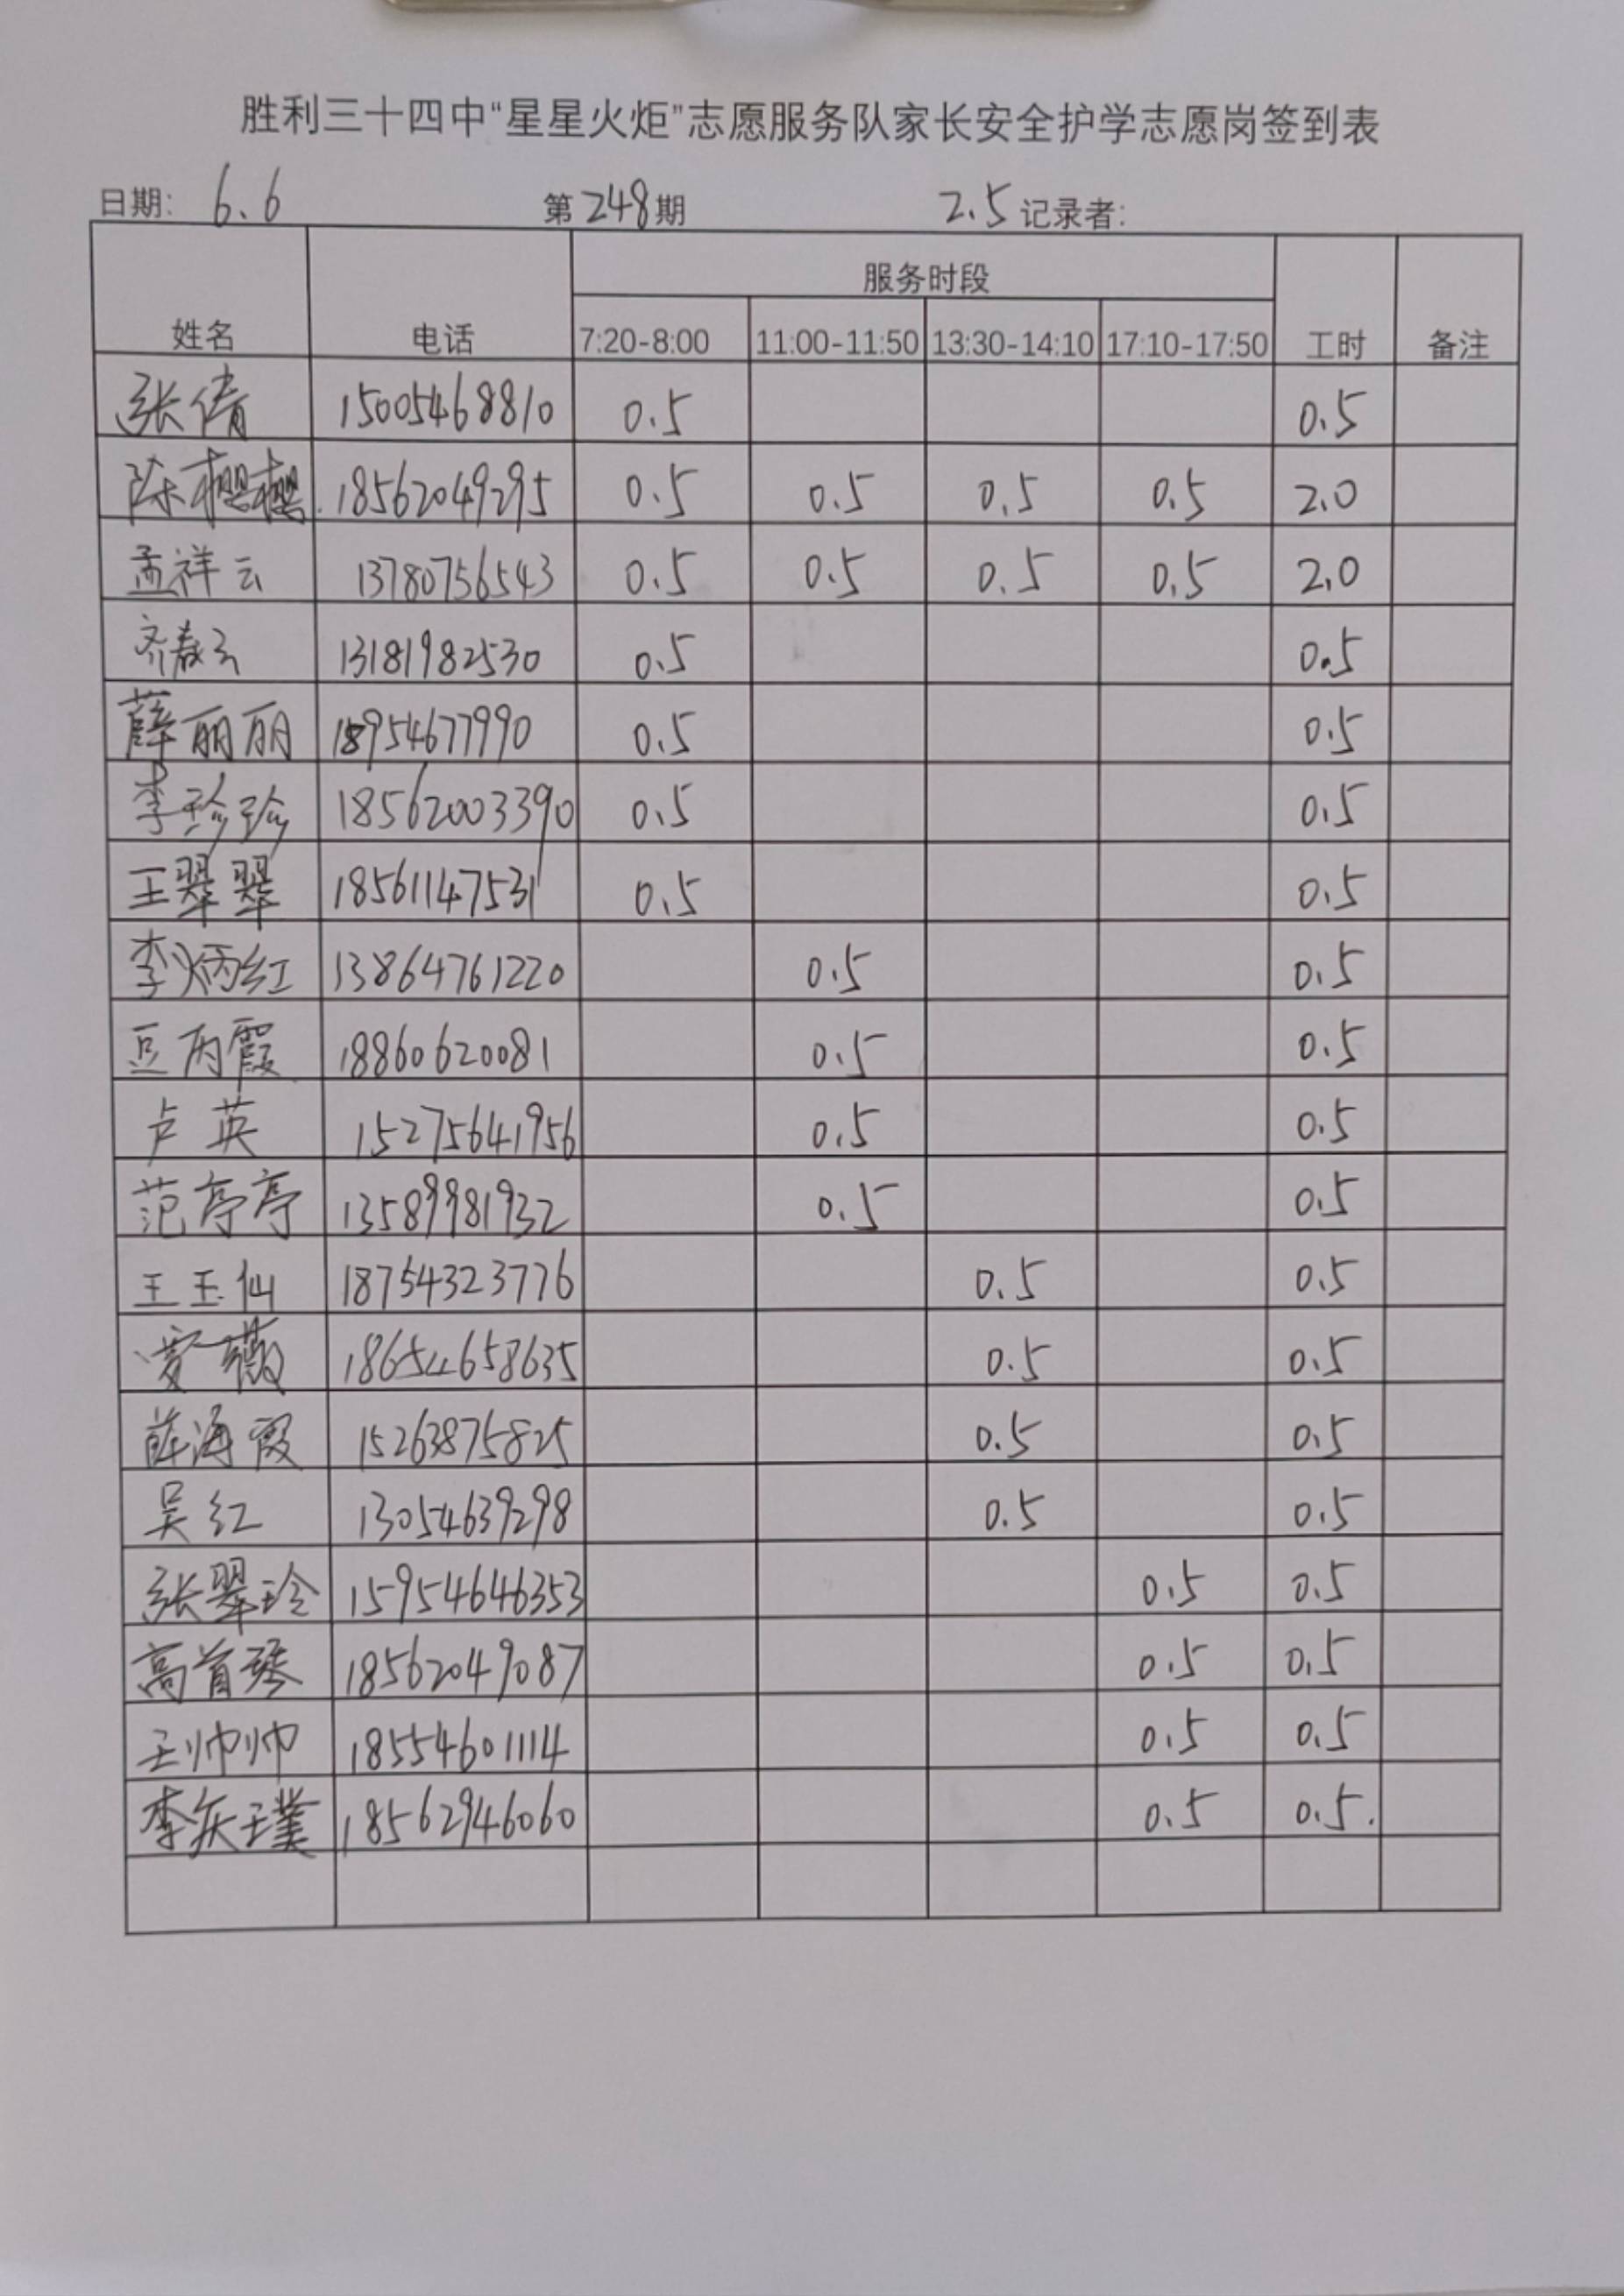 胜利三十四中“星星火炬”志愿服务队家长安全护学志愿岗签到表
日期: 6.6 第248期 2.5 记录者:
服务时段
姓名 电话 7:20-8:00 11:00-11:50 13:30-14:10 17:10-17:50 工时 备注
张倩 15005468810 0.5 0.5
陈樱樱 18562049295 0.5 0.5 0.5 0.5 2.0
孟祥云 13780756543 0.5 0.5 0.5 0.5 2.0
齐春云 13181982530 0.5 0.5
薛丽丽 18954677990 0.5 0.5
李珍珍 18562003390 0.5 0.5
王翠翠 18561147531 0.5 0.5
李炳红 13864761220 0.5 0.5
豆丙霞 18860620081 0.5 0.5
卢英 15275641956 0.5 0.5
范亭亭 13589981932 0.5 0.5
王玉仙 18754323776 0.5 0.5
薇 18654658635 0.5 0.5
薛海霞 15263875825 0.5 0.5
吴红 13054639298 0.5 0.5
张翠玲 15954646353 0.5 0.5
高首琴 18562049087 0.5 0.5
王帅帅 18554601114 0.5 0.5
李庆璞 18562946060 0.5 0.5.